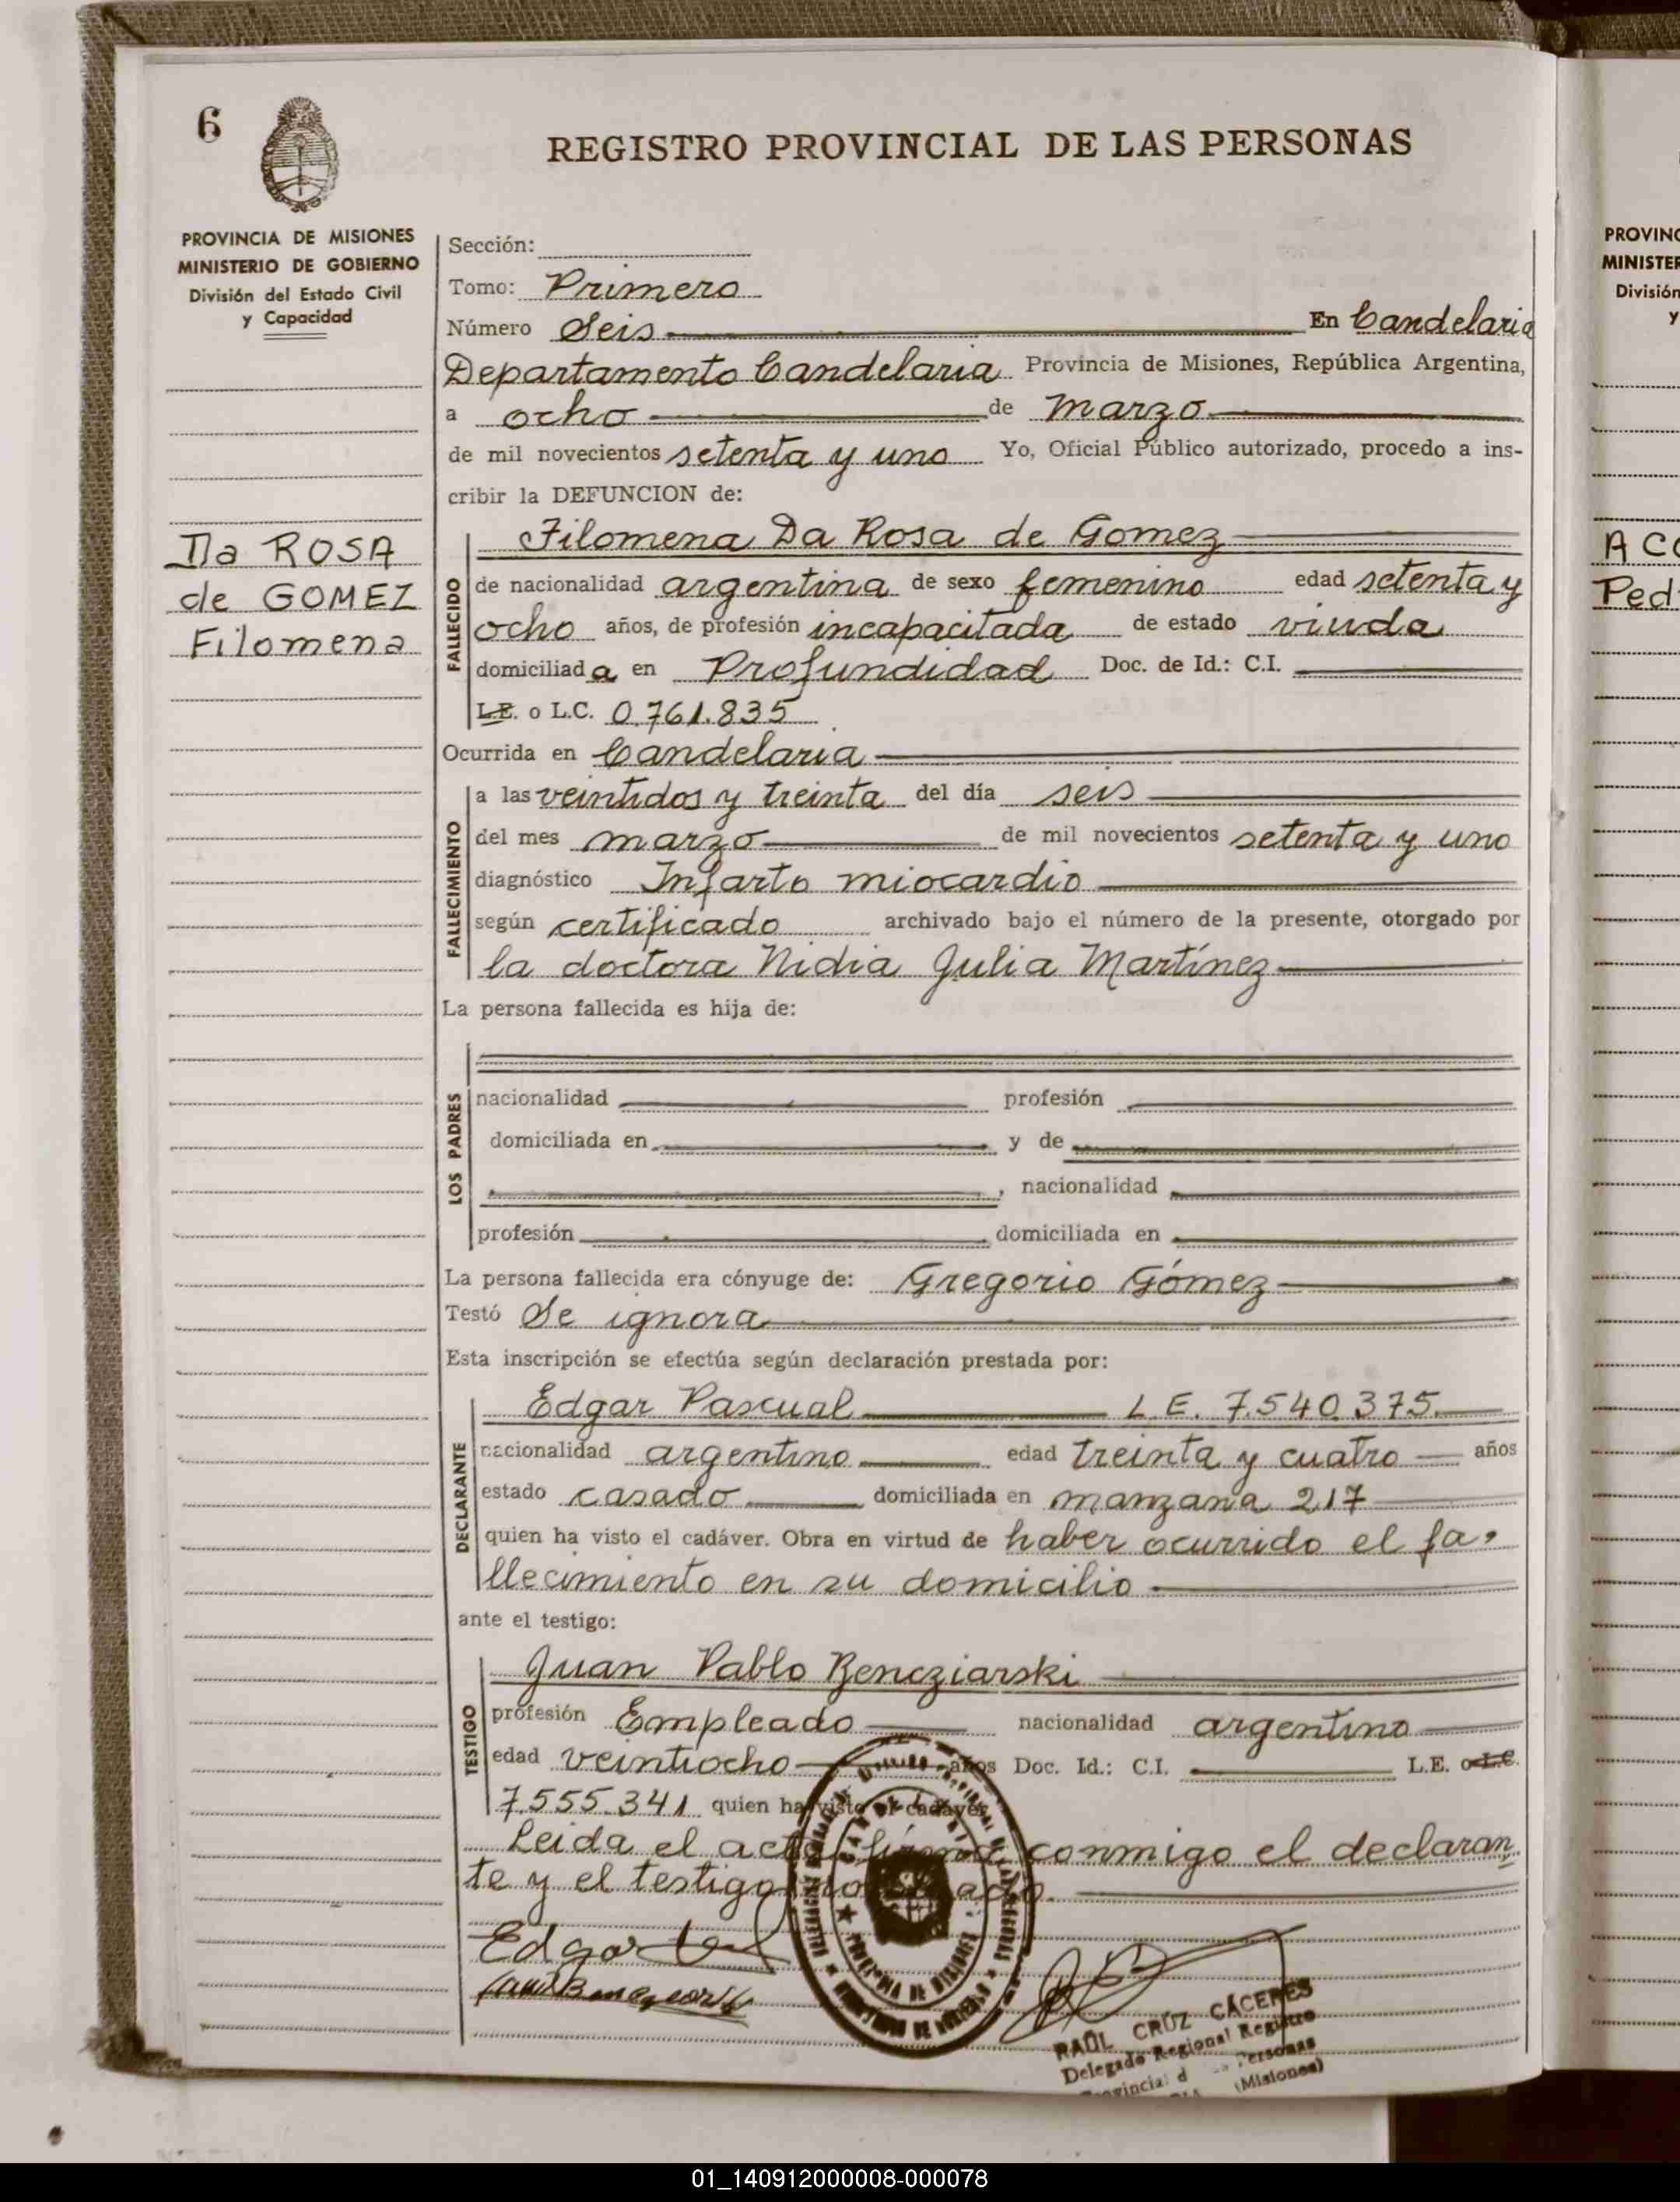 6
REGISTRO PROVINCIAL DE LAS PERSONAS
PROVINCIA DE MISIONES
MINISTERIO DE GOBIERNO
División del Estado Civil
y Capacidad
Da ROSA
de GOMEZ
Filomena
Sección:
Tomo: Primero
Número Seis En Candelaria
Departamento Candelaria Provincia de Misiones, República Argentina,
a ocho de marzo
de mil novecientos setenta y uno Yo, Oficial Público autorizado, procedo a ins-
cribir la DEFUNCION de:
FALLECIDO
Filomena Da Rosa de Gomez
de nacionalidad argentina de sexo femenino edad setenta y
ocho años, de profesión incapacitada de estado viuda
domiciliada en Profundidad Doc. de Id.: C.I.
L.E. o L.C. 0.761.835
Ocurrida en Candelaria
FALLECIMIENTO
a las veintidos y treinta del día seis
del mes marzo de mil novecientos setenta y uno
diagnóstico Infarto miocardio
según certificado archivado bajo el número de la presente, otorgado por
la doctora Nidia Julia Martínez
La persona fallecida es hija de:
LOS PADRES
nacionalidad profesión
domiciliada en y de
, nacionalidad
profesión domiciliada en
La persona fallecida era cónyuge de: Gregorio Gómez
Testó Se ignora
Esta inscripción se efectúa según declaración prestada por:
DECLARANTE
Edgar Pascual L.E. 7.540.375
nacionalidad argentino edad treinta y cuatro años
estado casado domiciliada en manzana 217
quien ha visto el cadáver. Obra en virtud de haber ocurrido el fa-
llecimiento en su domicilio
ante el testigo:
TESTIGO
Juan Pablo Bencziarski
profesión Empleado nacionalidad argentino
edad veintiocho años Doc. Id.: C.I. L.E. o L.C.
7.555.341 quien ha visto el cadáver
Leida el acta firma conmigo el declaran
te y el testigo
Edgar
PROVINCIA DE MISIONES
MINISTERIO DE GOBIERNO
RAÚL CRUZ CÁCERES
Delegado Regional Registro
Personas
(Misiones)
PROVINC
MINISTER
División
y
ACO
Ped
01_140912000008-000078